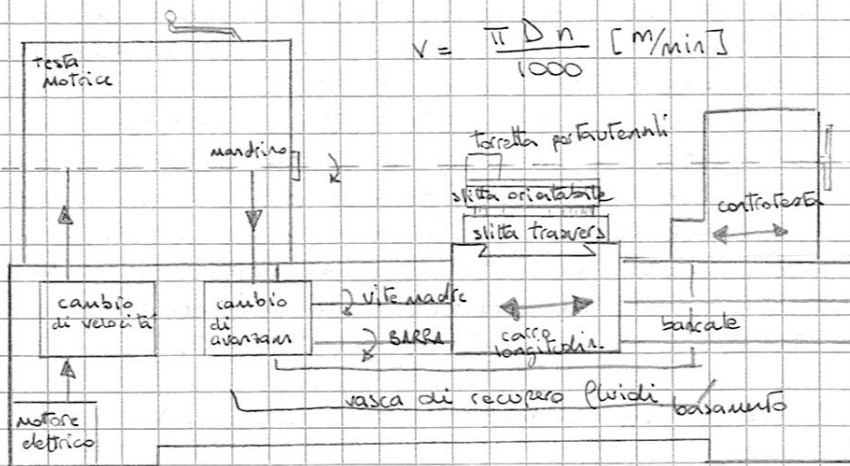 V = π D n / 1000 [m/min]
testa
motrice
mandrino
torretta portautensili
slitta orientabile
slitta trasvers
controtesta
cambio
di velocità
cambio
di
avanzam
vite madre
BARRA
carro
longitudin.
bancale
vasca di recupero fluidi
basamento
motore
elettrico